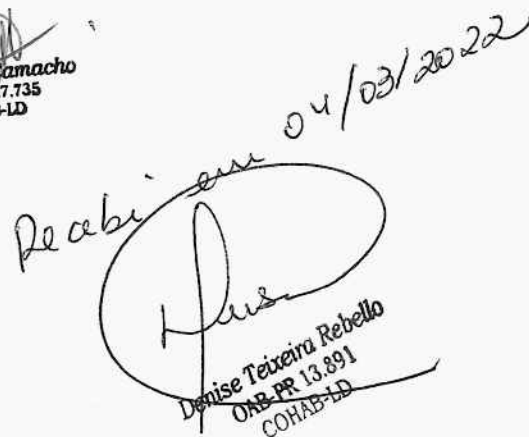 Camacho
7.735
-LD
Recebi em 04/03/2022
Denise Teixeira Rebello
OAB-PR 13.891
COHAB-LD